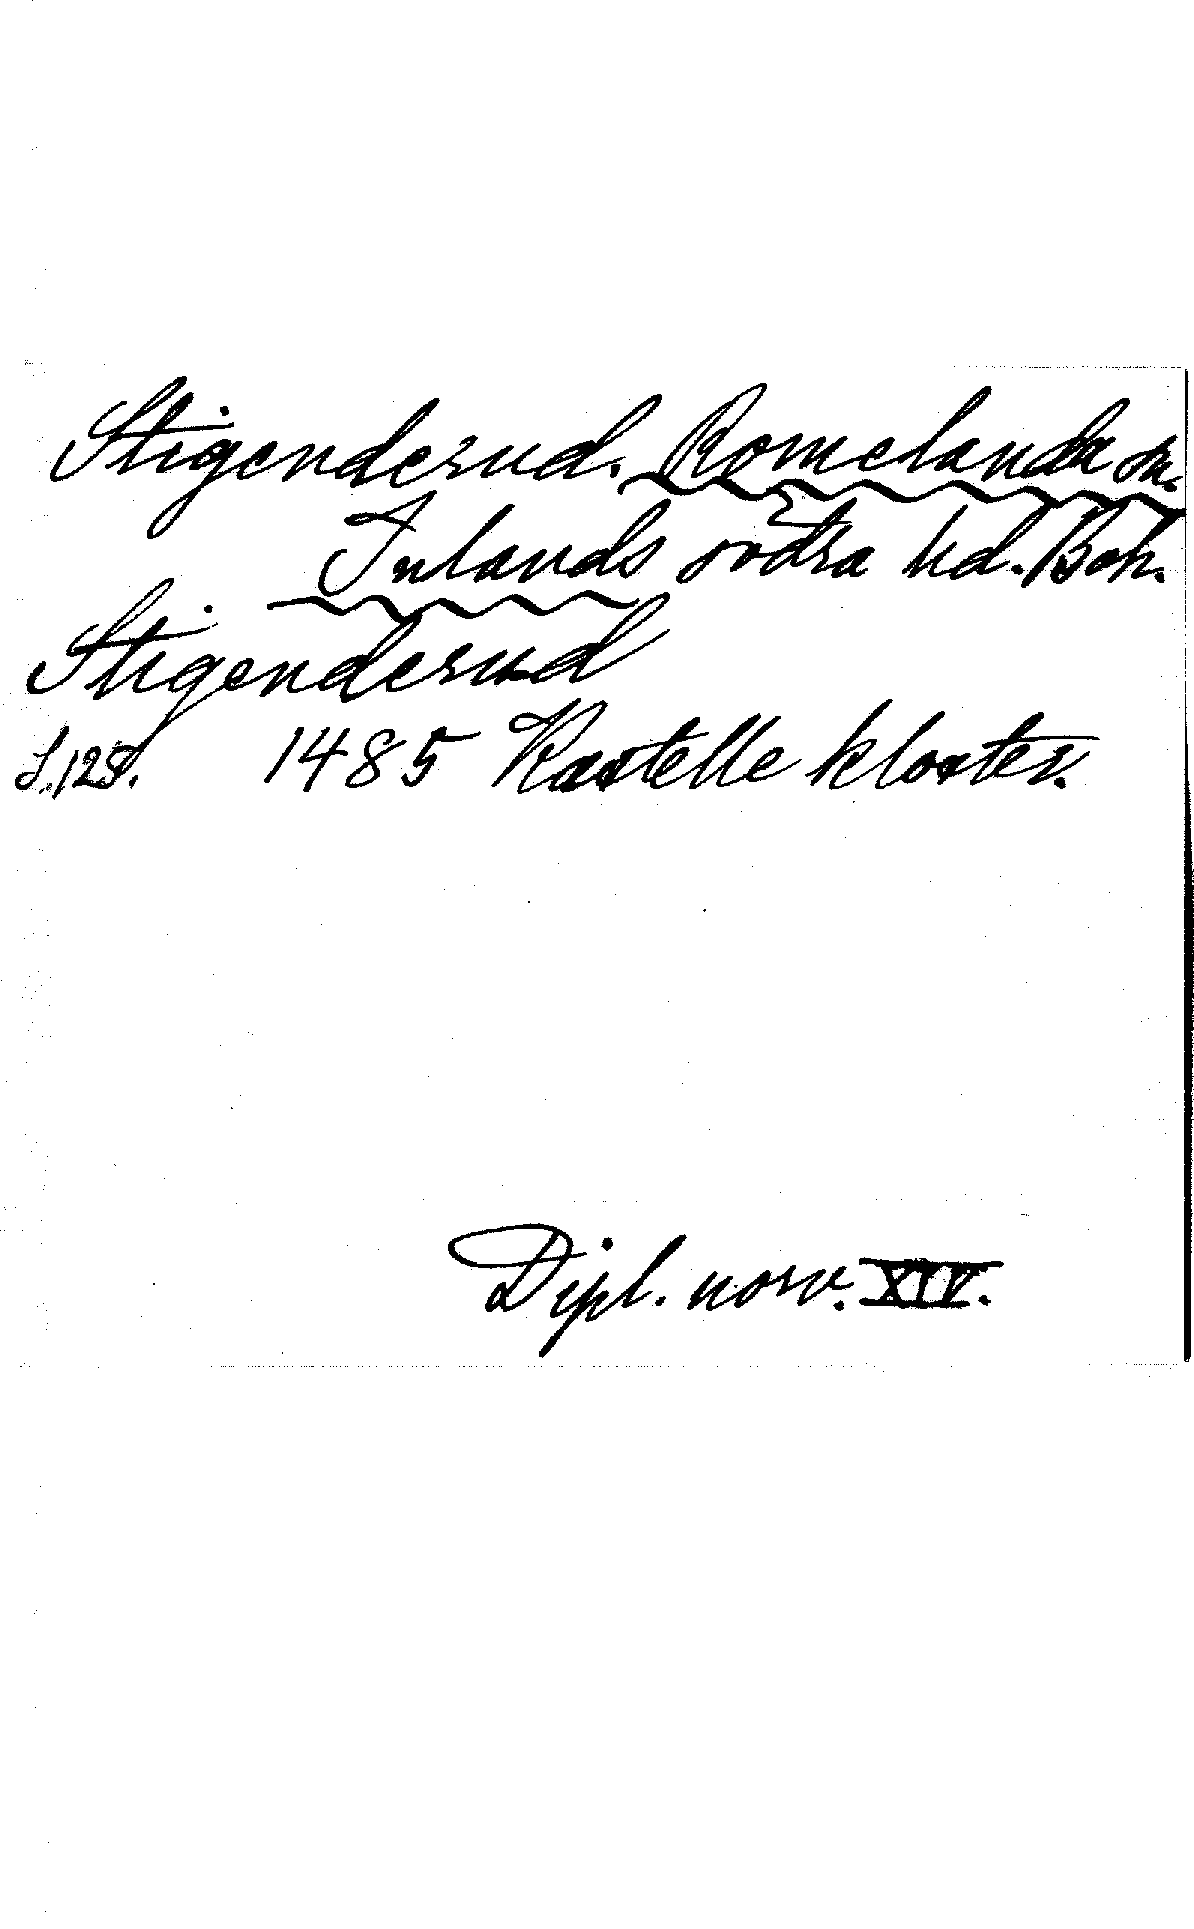 Stigenderud. Romelanda sn.
Inlands södra hd. Boh.
Stigenderud
S. 125. 1485 Kastelle kloster.
Dipl. norv. XIV.